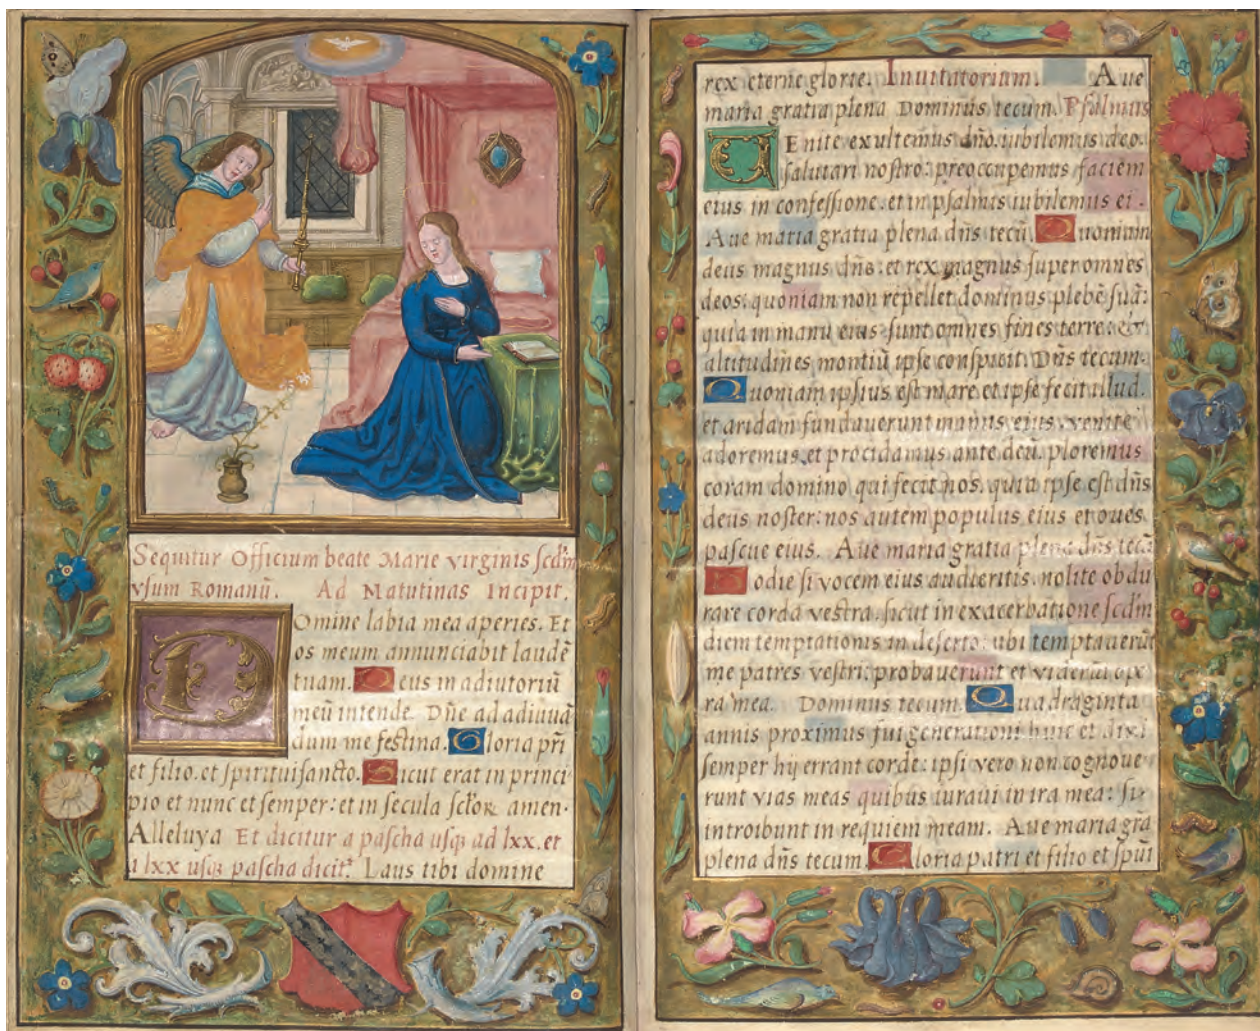 Sequitur Officium beate Marie virginis scdm̃
vsum Romanũ. Ad Matutinas Incipit.
Domine labia mea aperies. Et
os meum annunciabit laudẽ
tuam. Deus in adiutoriũ
meũ intende. Dñe ad adiuuã
dum me festina. Gloria pr̃i
et filio. et spirituisancto. Sicut erat in princi
pio et nunc et semper: et in secula sctoꝝ amen.
Alleluya Et dicitur a pascha usqꝫ ad lxx. et
a lxx usqꝫ pascha dicit᷑. Laus tibi domine
rex eterne glorie. Inuitatorium. Aue
maria gratia plena Dominus tecum. Psalmus
VEnite exultemus dño. iubilemus deo.
salutari nostro: preoccupemus faciem
eius in confessione. et in psalmis iubilemus ei.
Aue maria gratia plena dñs tecũ. Quoniam
deus magnus dñs: et rex magnus super omnes
deos: quoniam non repellet dominus plebẽ suã:
quia in manu eius sunt omnes fines terre: et
altitudines montiũ ipse conspicit. Dñs tecum.
Quoniam ipsius est mare et ipse fecit illud.
et aridam fundauerunt manus eius. venite
adoremus. et procidamus ante deũ. ploremus
coram domino qui fecit nos. quia ipse est dñs
deus noster: nos autem populus eius et oues
pascue eius. Aue maria gratia plena dñs tecũ
Hodie si vocem eius audieritis. nolite obdu
rare corda vestra. sicut in exacerbatione scdm̃
diem temptationis in deserto: ubi temptauerũt
me patres vestri: probauerunt et viderũt ope
ra mea. Dominus tecum. Quadraginta
annis proximus fui generationi huic et dixi
semper hij errant corde: ipsi vero non cognoue
runt vias meas quibus iuraui in ira mea: si
introibunt in requiem meam. Aue maria gra
plena dñs tecum. Gloria patri et filio et spũi